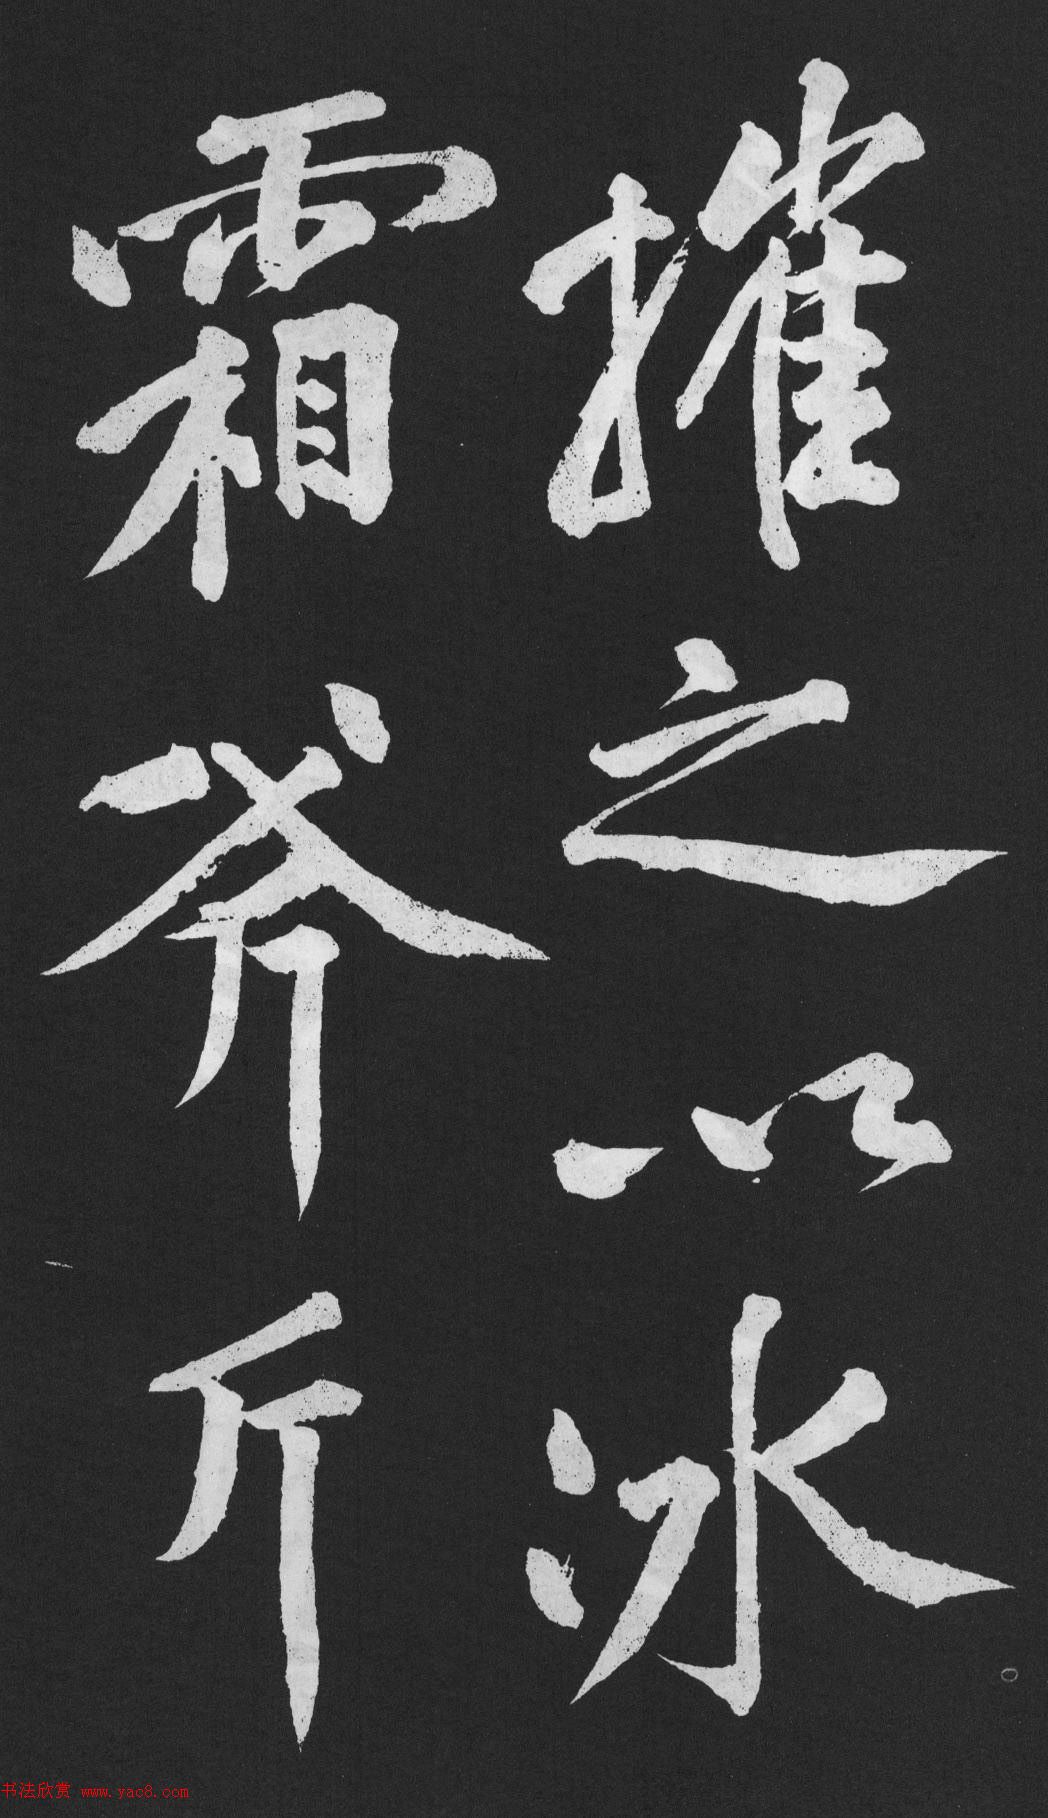 摧之以冰
霜斧斤
书法欣赏 www.yac8.com